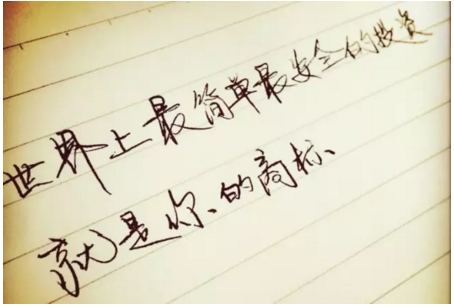 世界上最简单最安全的投资
就是你的商标